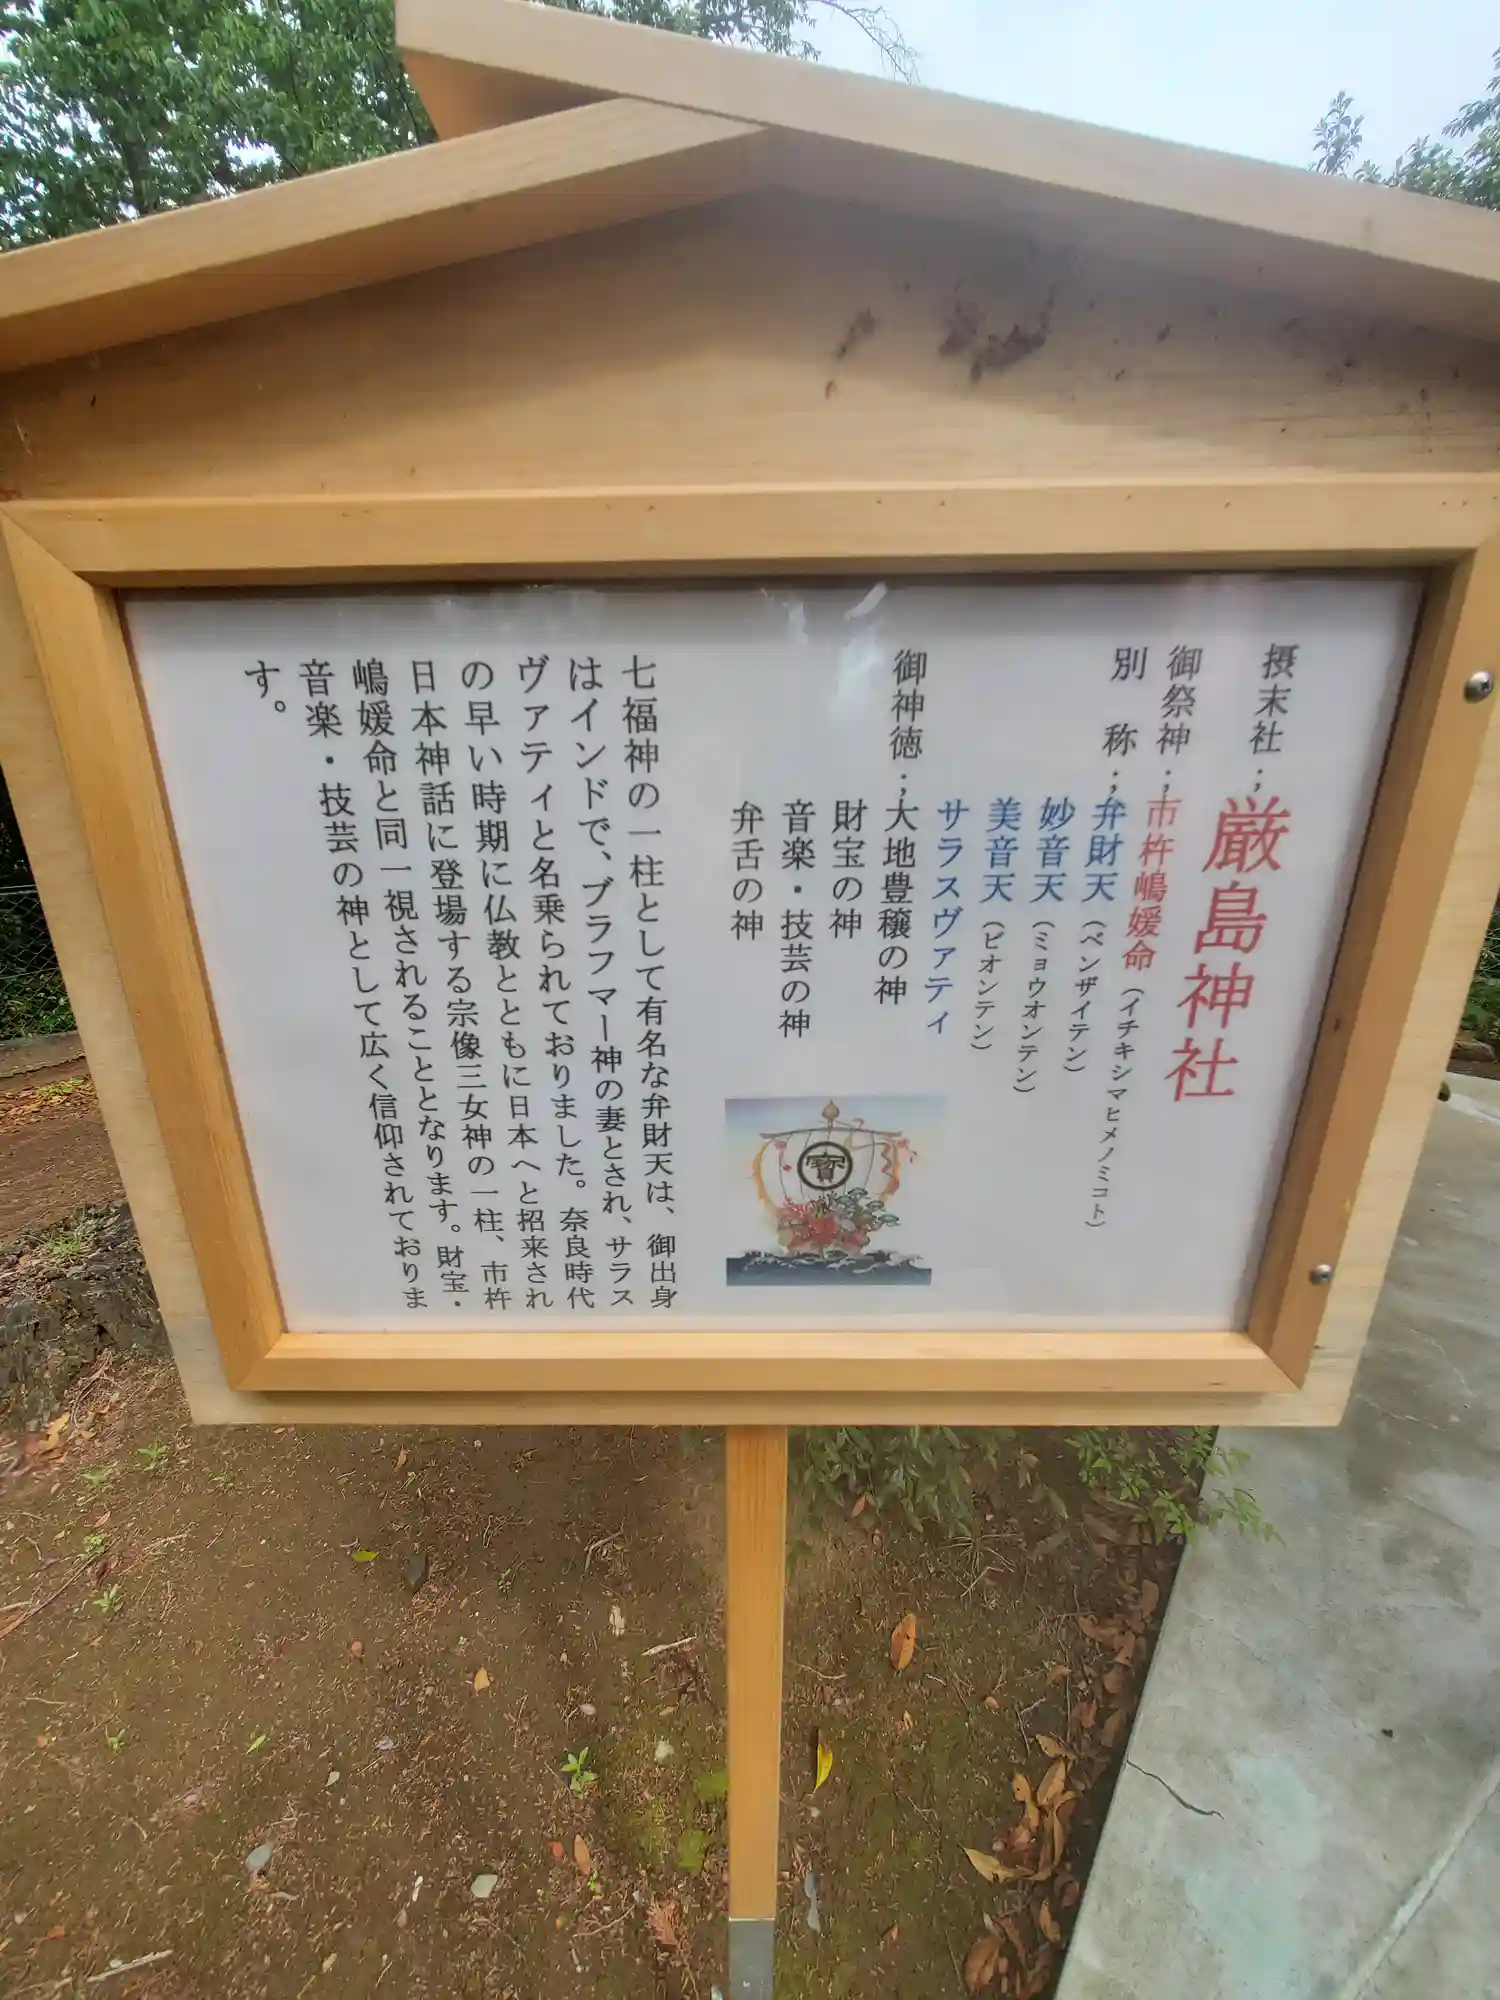 摂末社；厳島神社
御祭神；市杵嶋媛命（イチキシマヒメノミコト）
別　称；弁財天（ベンザイテン）
妙音天（ミョウオンテン）
美音天（ビオンテン）
サラスヴァティ
御神徳；大地豊穣の神
財宝の神
音楽・技芸の神
弁舌の神
寳
七福神の一柱として有名な弁財天は、御出身
はインドで、ブラフマー神の妻とされ、サラス
ヴァティと名乗られておりました。奈良時代
の早い時期に仏教とともに日本へと招来され
日本神話に登場する宗像三女神の一柱、市杵
嶋媛命と同一視されることとなります。財宝・
音楽・技芸の神として広く信仰されておりま
す。